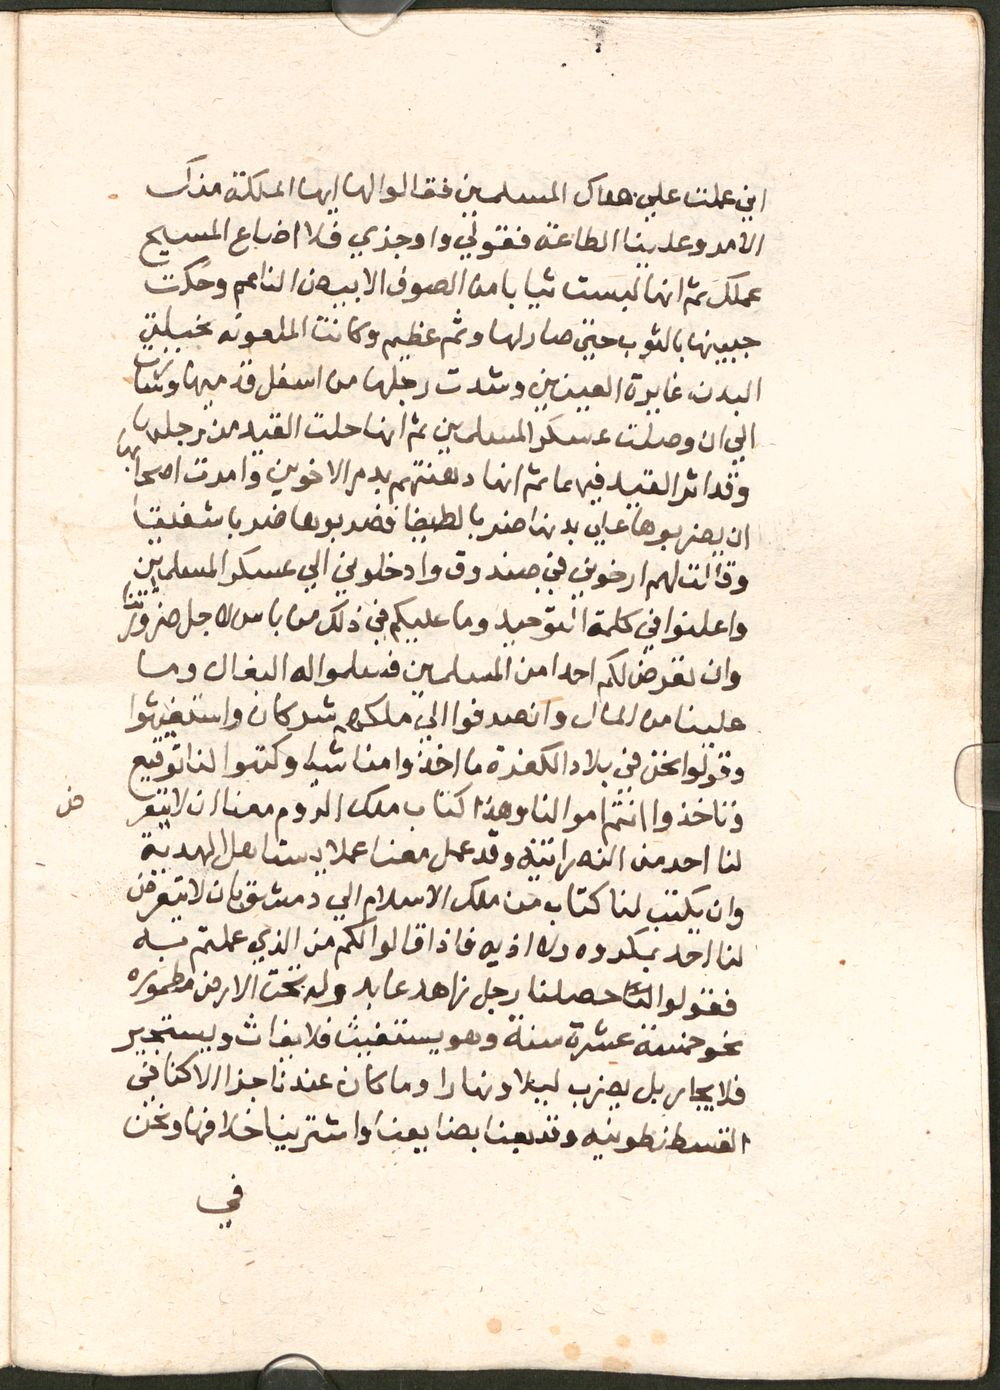 اني عملت علي هلاك المسلمين فقالوا لها ايها الملكة منك
الامر وعلينا الطاعة فقولي واوجزي فلا اضاع المسيح
عملك ثم انها لبست ثيابا من الصوف الابيض الناعم وحكت
جبينها بالثوب حتي صار لها وشم عظيم وكانت الملعونه نحيلة
البدن غايرة العينين وشدت رجلها من اسفل قدميها وسارت
الي ان وصلت عسكر المسلمين ثم انها حلت القيد من رجليها
وقد اثر القيد فيهما ثم انها دهنتهم بدم الاخوين وامرت اصحابها
ان يضربوها علي بدنها ضربا لطيفا فضربوها ضربا
وقالت لهم ارخوني في صندوق وادخلوني الي عسكر المسلمين
واعلنوا في كلمة التوحيد وما عليكم في ذلك من باس لاجل ضرورتنا
وان تعرض لكم احدا من المسلمين فسلموا له البغال وما
علينا من المال وانصرفوا الي ملكهم شركان واستغيثوا
وقولوا نحن في بلاد الكفرة ما اخذوا منا شيا وكتبوا لنا توقيع
وتاخذوا انتم اموالنا وهذا كتاب ملك الروم معنا ان لا يتعر
ض
لنا احد من النصرانيه وقد عمل معنا عملا يستاهل الهدية
وان يكتب لنا كتاب من ملك الاسلام الي دمشق بان لا يتعرض
لنا احد بمكروه ولا اذيه فاذا قالوا لكم من الذي عملتم به
فقولوا لنا حصلنا رجل زاهد عابد وله تحت الارض مطموره
نحو خمسة عشرة سنة وهو يستغيث فلا يغاث ويستجير
فلا يجار بل يضرب ليلا ونهارا وما كان عندنا خبرا الا كنا في
القسطنطونيه وقد بعنا بضايعنا واشترينا خلافها ونحن
في